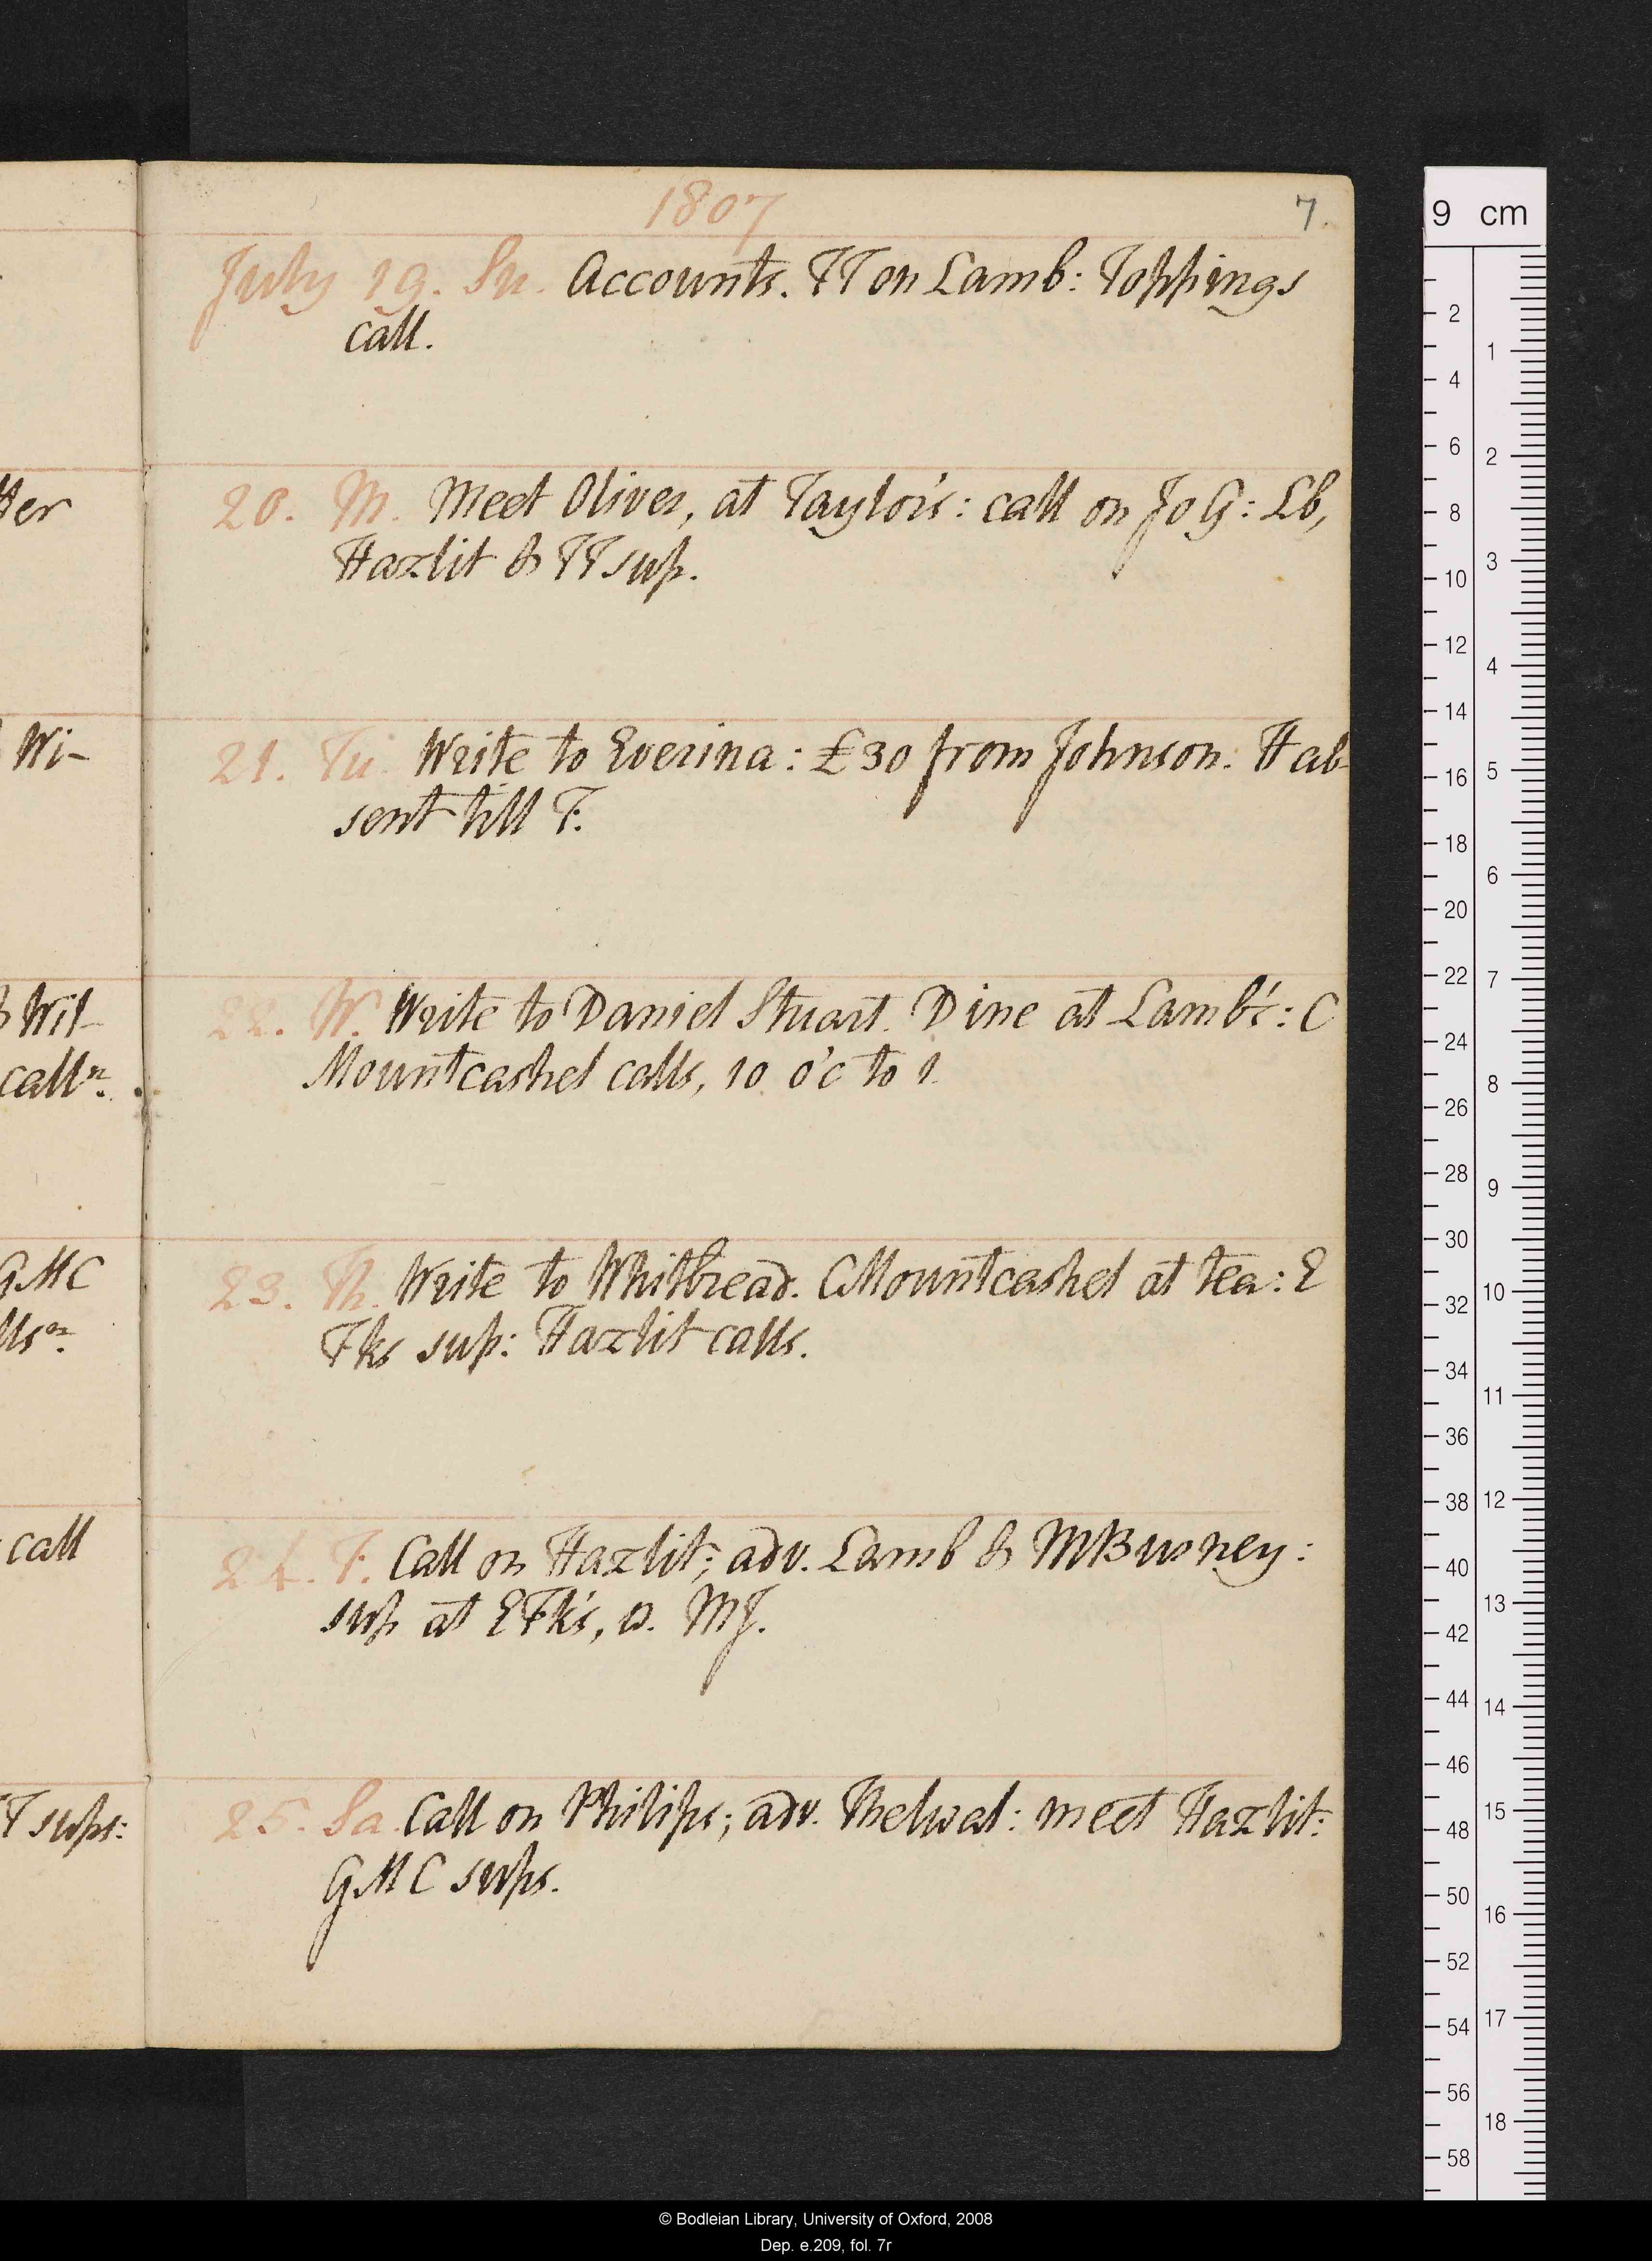 1807
7.
July 19. Su. Accounts. TT on Lamb: Toppings
call.
20. M. Meet Oliver, at Taylor's: call on Jo G: Lb,
Hazlit & TT sup.
21. Tu. Write to Everina: £30 from Johnson. H ab-
sent till F.
22. W. Write to Daniel Stuart. Dine at Lamb's: C
Mountcashel calls, 10 o'c to 1.
23. Th. Write to Whitbread. C Mountcashel at tea: E
Fks sup: Hazlit calls.
24. F. Call on Hazlit; adv. Lamb & M Burney:
sup at E Fk's, w. MJ.
25. Sa. Call on Philips; adv. Thelwal: meet Hazlit:
GMC sups.
Her
Wi-
Wil-
call
GMC
call
T sups:
9 cm
2
4
6
8
10
12
14
16
18
20
22
24
26
28
30
32
34
36
38
40
42
44
46
48
50
52
54
56
58
1
2
3
4
5
6
7
8
9
10
11
12
13
14
15
16
17
18
© Bodleian Library, University of Oxford, 2008
Dep. e.209, fol. 7r